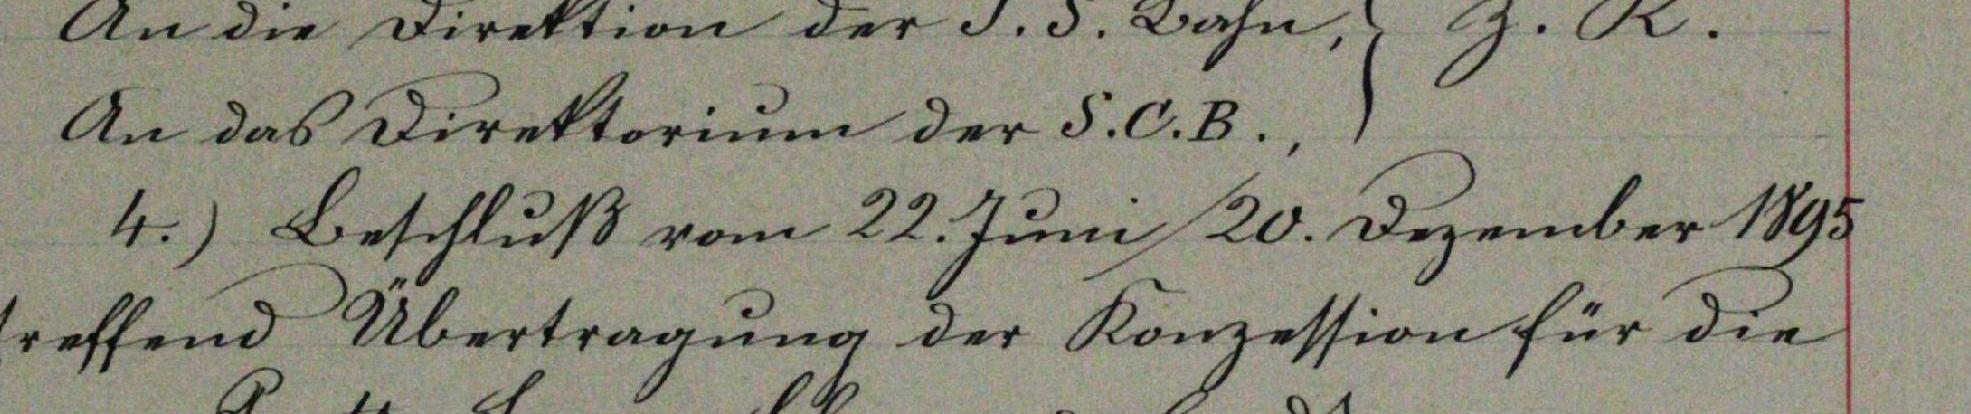 An die Direktion der J. S. Bahn, } Z. K.
An das Direktorium der S.C.B.,
4.) Beschluß vom 22. Juni/20. Dezember 1895
treffend Übertragung der Konzession für die